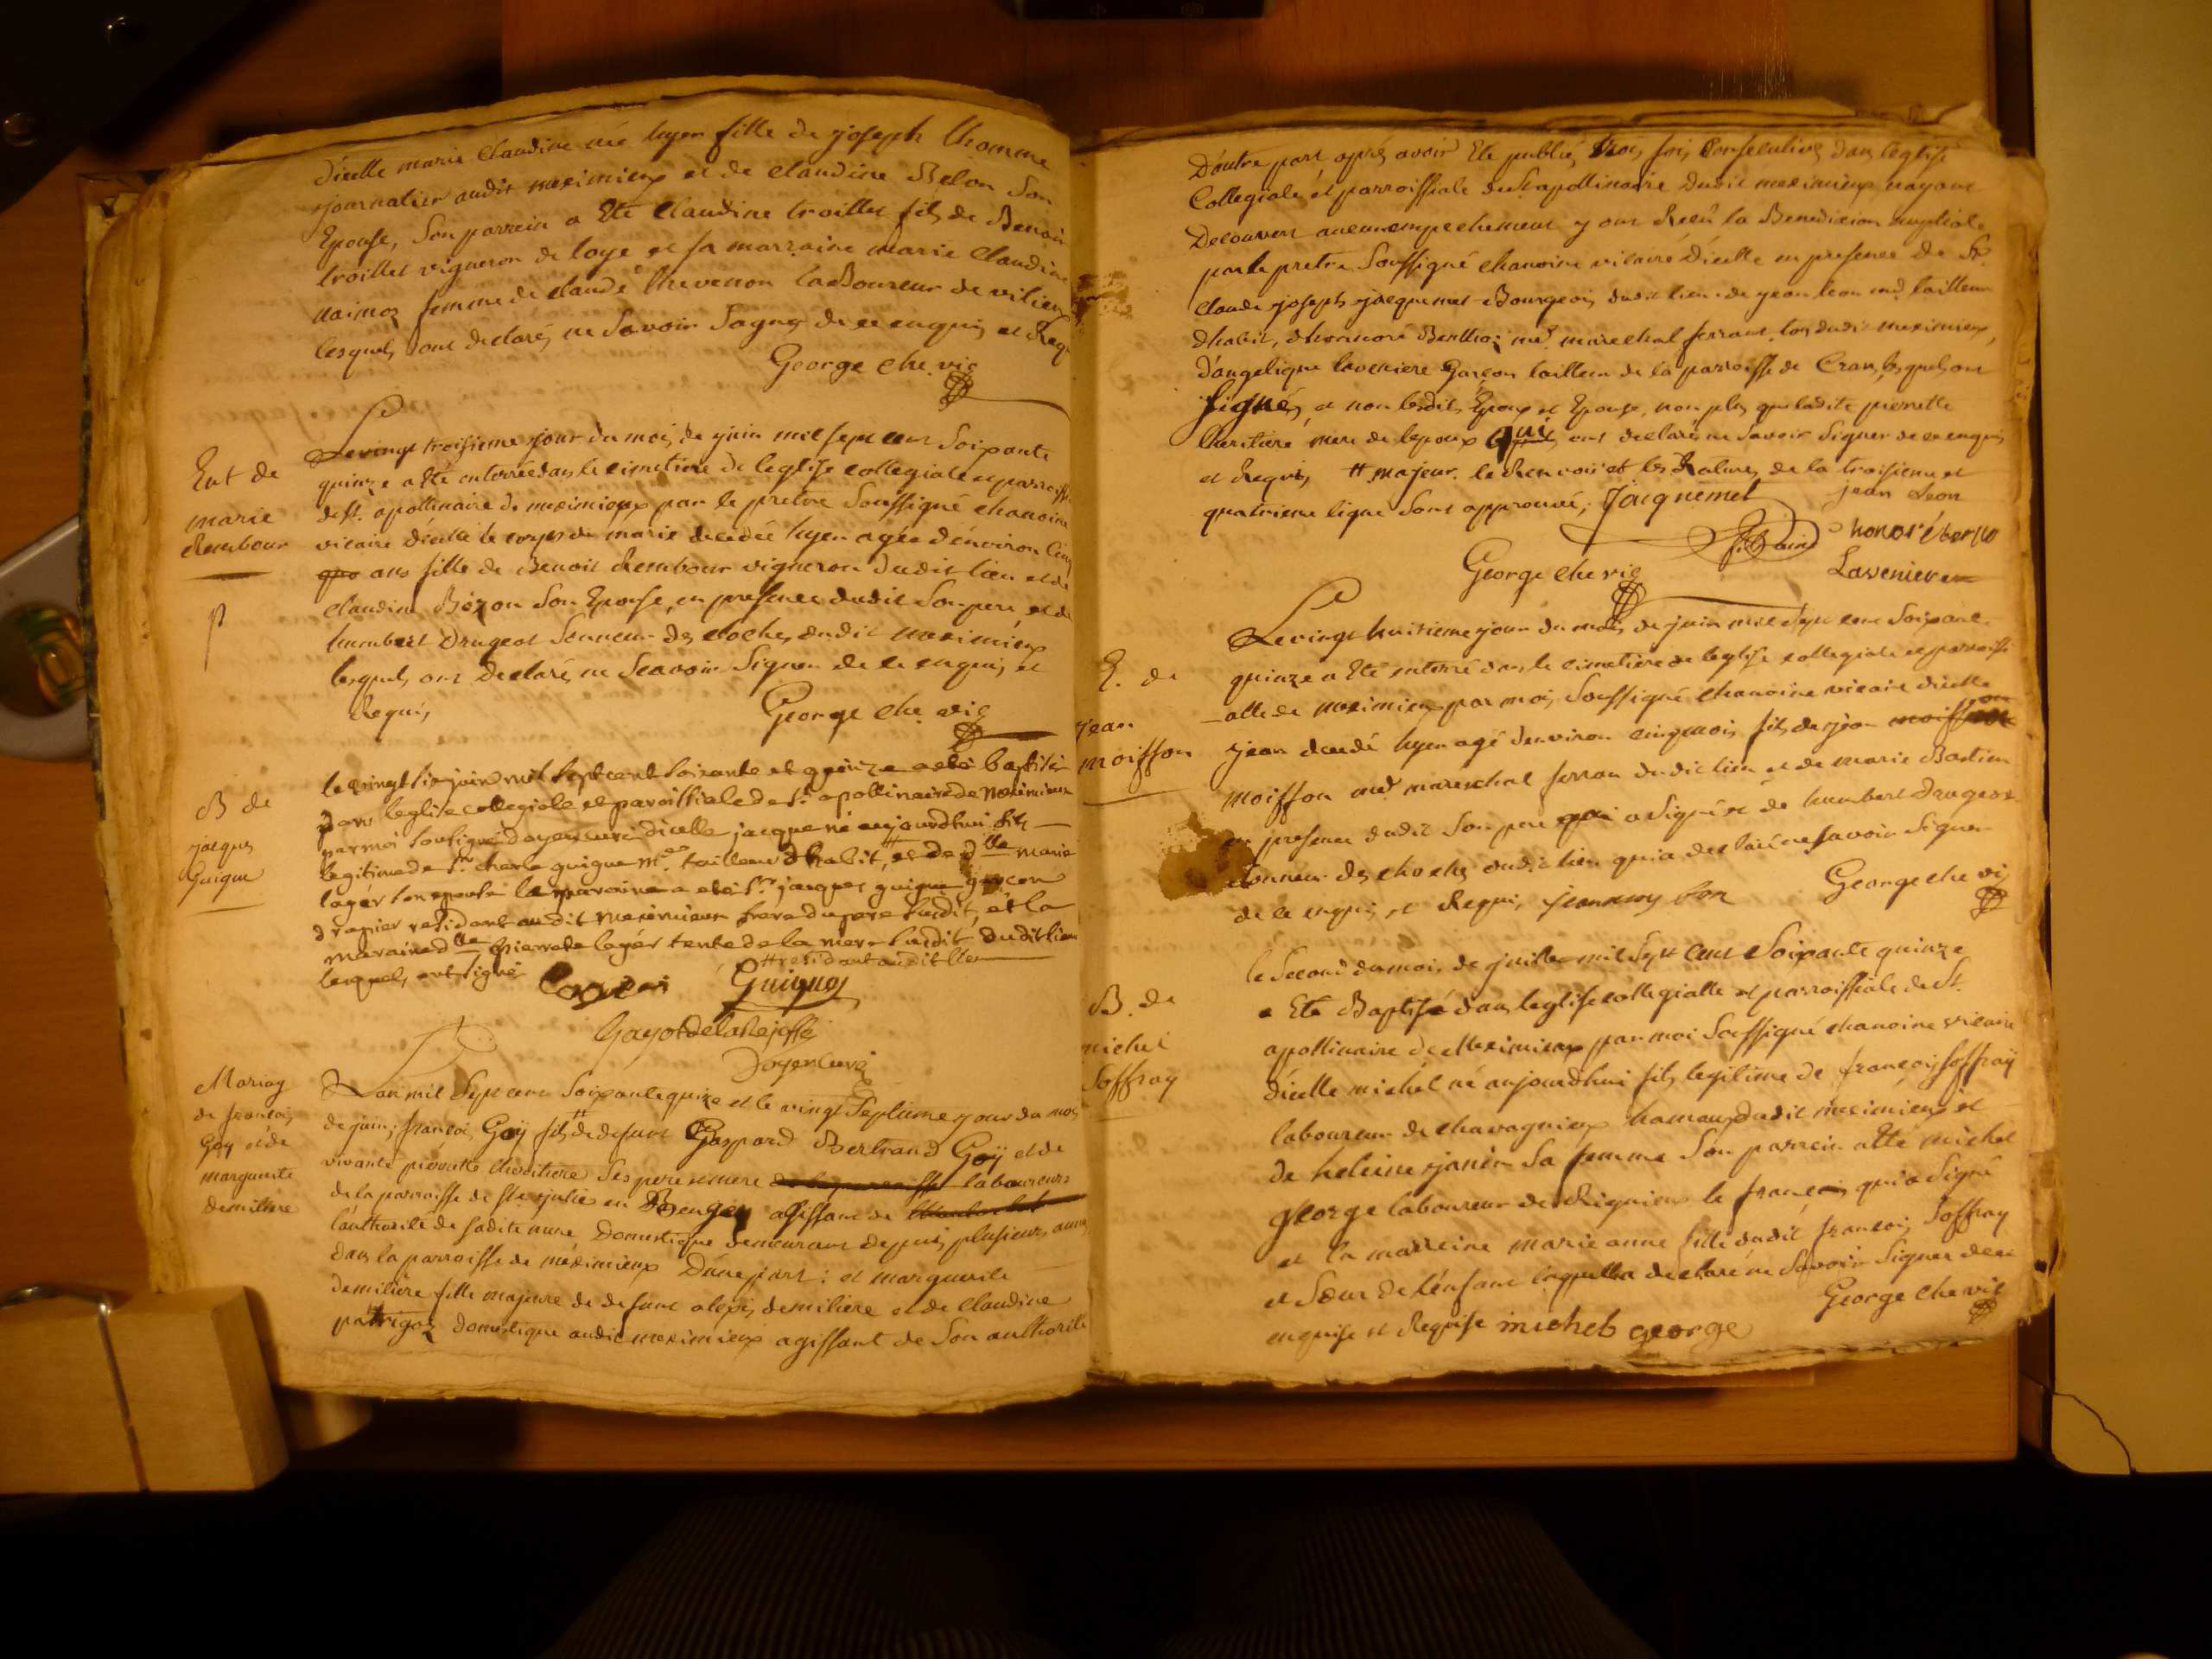 dicelle marie Claudine née hyer fille de joseph lhomme
journalier audit meximieux et de claudine Belon Son
Epouse, Son parrein a Eté Claudine troillet fils de Benoit
troillet vigneron de loye et sa marraine marie Claudine
naimoz femme de claude thevenon laboureur de vilieux
lesquels ont declarés ne Savoir Signer de ce enquis et Requ
George che. vic
Ent de
marie
Rembour
Le vingt troisieme jour du mois de juin mil sept cent Soixante
quinze a Eté enterrée dans le cimetiere de leglise collegiale et parroissi
de st. apollinaire de meximieux par le pretre Souffigné chanoine
vicaire d'icelle le corps de marie decedée hyer agée d'environ Cinq
ans fille de Benoit Rembour vigneron dudit lieu et de
Claudine Bozon Son Epouse, en presence dudit Son pere et de
humbert Drugeot Sonneur des cloches dudit meximieux
lesquels ont declaré ne Scavoir Signer de ce enquis et
Requis
George che. vic
B de
jacques
Guigue
le vingt six juin mil sept cent soixante et quinze a eté baptisé
dans leglise collegiale et paroissiale de st. apollinaire de meximieux
par moi soussigné doyen curé dicelle jacque né aujourdhui fils
legitime de sr. charle guigue md. tailleur dhabit, et de dlle marie
lagér son epouse le paraine a eté sr. jacques guigue garcon
drapier residant audit meximieux frere du pere susdit, et la
maraine dlle pierrete lagér tente de la mere susdit dudit lieu
lesquels ont signé
# residant audit lieu
Guigue
Gayot de la Rejasse
Doyen Curé
Mariag
de francois
Goy et de
marguerite
demiliere
L'an mil Sept cent Soixante quinze et le vingt Septieme jour du mois
de juin; francois Goÿ fils # de defunt Gaspard Bertrand Goÿ et de
vivante pierrette theritiere Ses pere et mere de la parroisse laboureurs
de la parroisse de ste julie en Beugey agissant de
l'authorité de sadite mere, Domestique demeurant depuis plusieurs années
dans la parroisse de méximieux D'une part: et marguerite
demiliere fille majeure de defunt alexis demiliere et de Claudine
patrigoz domestique audit meximieux agissant de Son authorité
D'autre part aprés avoir Eté publiés trois fois Consecutives dans leglise
Collegiale et parroissiale de St apollinaire dudit meximieux nayant
Decouvert aucun empechement y ont Recû la Benediction nuptiale
par le pretre Souffigné chanoine vicaire D'icelle en presence de Sr.
claude joseph jacquemet Bourgeois dudit lieu de jean leon md. tailleur
dhabit, d'honnoré Berthoz md. marechal ferrant tous dudit meximieux,
d'angelique laveniere Garçon tailleur de la parroisse de Crans, lesquels ont
signés, et non lesdits Epoux et Epouse, non plus que ladite pierrette
theritiere mere de lepoux qui ont declarés ne Savoir Signer de ce enquis
et Requis # majeur. le Renvoir et les Ratures de la troisieme et
quatrieme ligne Sont approuvé; Jacquemet
jean Leon
honoré berto
George che vic
Laveniere
E. de
jean
moisson
Le vingt huitieme jour du mois de juin mil Sept cent Soixante
quinze a Eté enterré dans le cimetiere de leglise collegiale et parroissi
alle de meximieux par moi Souffigné chanoine vicaire dicelle
jean decedé hyer agé denviron cinq mois fils de jean
moisson md. mareschal ferran dudit lieu et de marie Bastien
en presence dudit Son pere qui a Signé et de humbert Drugeot
Sonneur des cloches dudit lieu qui a declaré ne Savoir Signer
de ce enquis et Requis
George che vic
B. de
michel
Soffray
le Second du mois de juillet mil Sept Cent Soixante quinze
a Eté Baptisé dans leglise collegialle et parroissiale de St.
apollinaire de Meximieux par moi Souffigné chanoine vicaire
d'icelle michel né aujourdhui fils legitime de francois soffraÿ
laboureur de chavagnieux hameau dudit meximieux et
de heleine janin Sa femme Son parrein a Eté michel
george laboureur de Rignieux le franc qui a Signé
et la marreine marie anne fille dudit francois Soffray
et Soeur de l'enfant laquelle a declaré ne Savoir Signer de ce
enquise et Requise michel george
George che vic